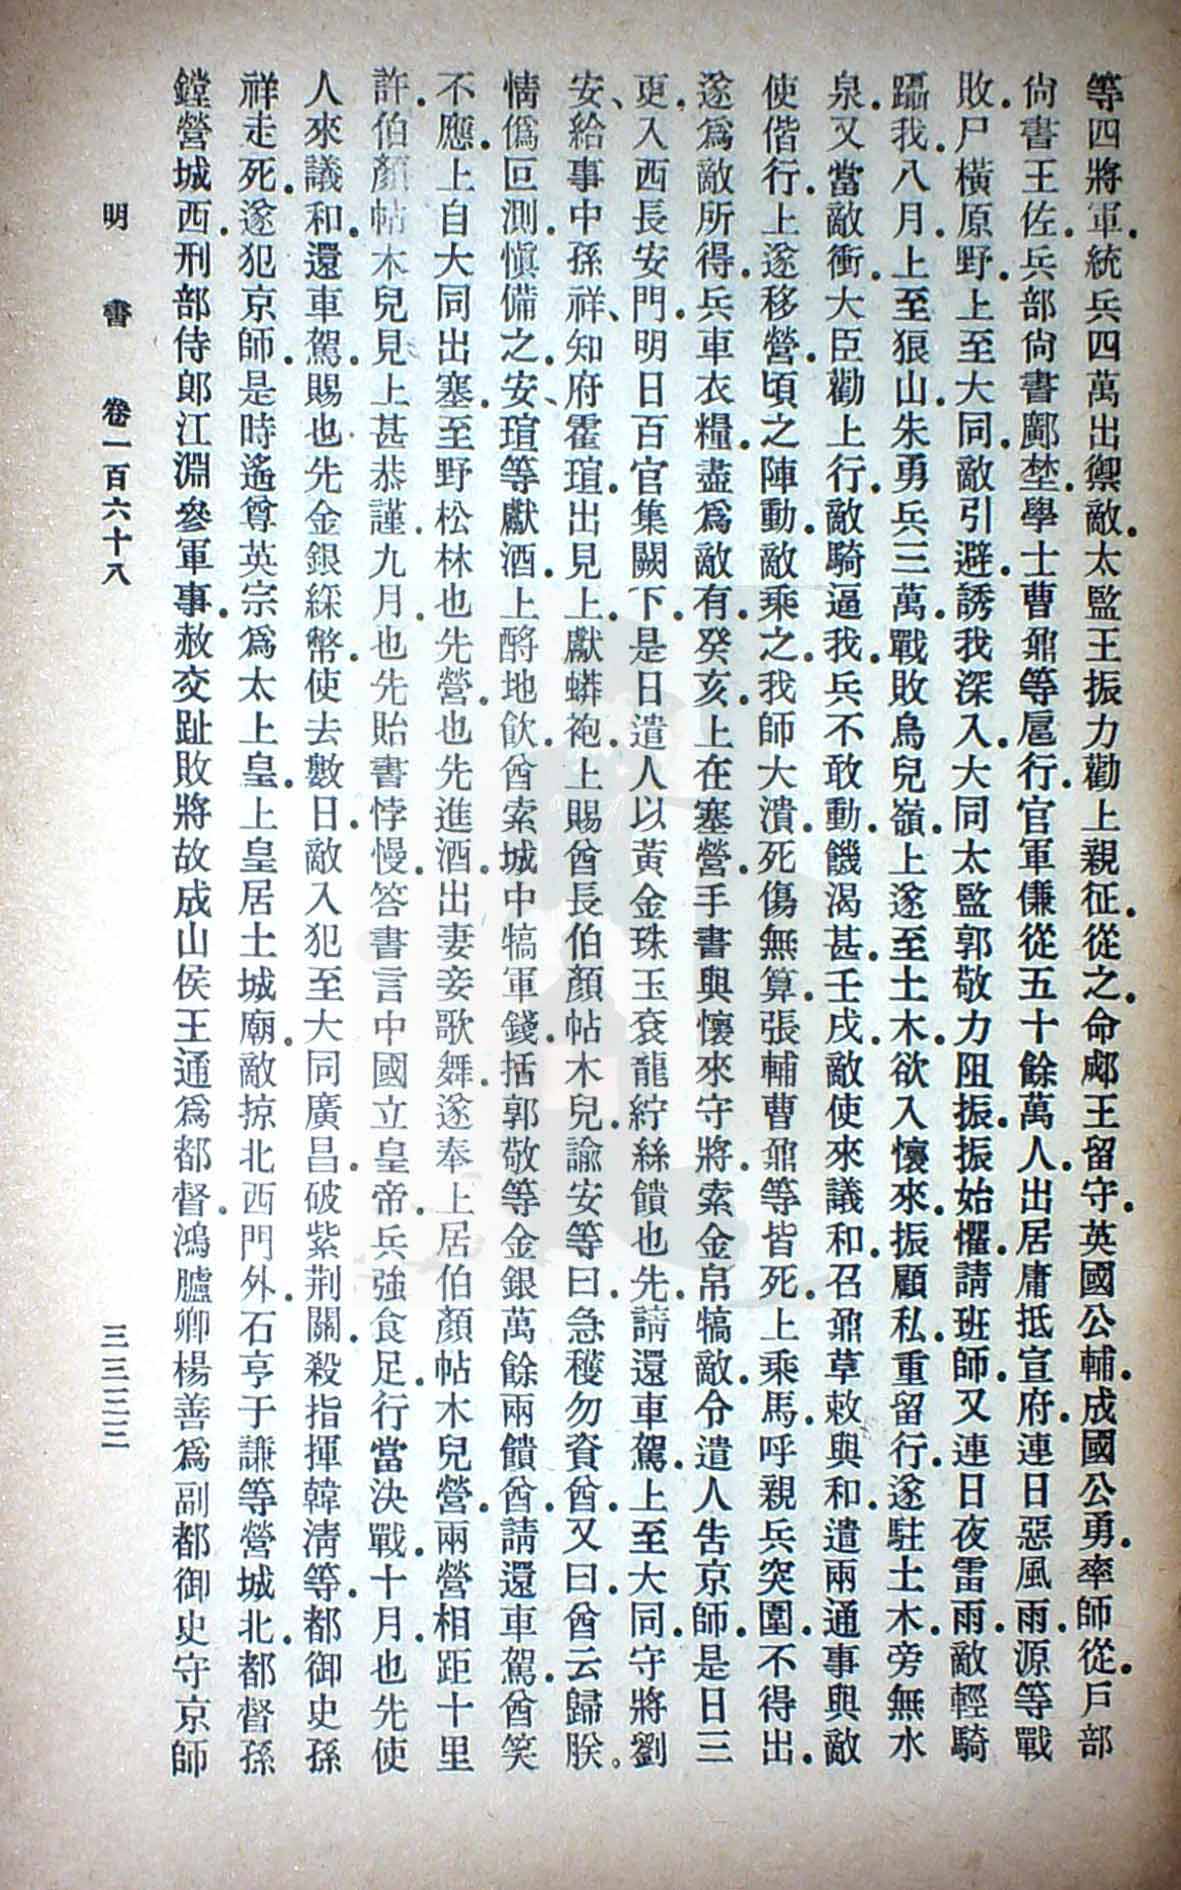 等四將軍。統兵四萬出禦敵。太監王振力勸上親征。從之。命郕王留守。英國公輔。成國公勇。率師從。戶部
尚書王佐。兵部尚書鄺埜。學士曹鼐等扈行。官軍傔從五十餘萬人。出居庸抵宣府。連日惡風雨。源等戰
敗。尸橫原野。上至大同。敵引避。誘我深入。大同太監郭敬力阻振。振始懼。請班師。又連日夜雷雨。敵輕騎
躡我。八月。上至狼山。朱勇兵三萬。戰敗鳥兒嶺。上遂至土木。欲入懷來。振顧私重留行。遂駐土木。旁無水
泉。又當敵衝。大臣勸上行。敵騎逼我。兵不敢動。饑渴甚。壬戌。敵使來議和。召鼐草敕與和。遣兩通事與敵
使偕行。上遂移營。頃之陣動。敵乘之。我師大潰。死傷無算。張輔曹鼐等皆死。上乘馬。呼親兵突圍。不得出。
遂爲敵所得。兵車衣糧。盡爲敵有。癸亥。上在塞營。手書與懷來守將。索金帛犒敵。令遣人告京師。是日三
更。入西長安門。明日百官集闕下。是日遣人以黃金珠玉袞龍紵絲饋也先。請還車駕。上至大同。守將劉
安、給事中孫祥、知府霍瑄。出見上。獻蟒袍。上賜酋長伯顏帖木兒。諭安等曰。急穫勿資酋。又曰。酋云歸朕。
情僞叵測。愼備之。安、瑄等獻酒。上酹地飲。酋索城中犒軍錢。括郭敬等金銀萬餘兩饋酋。請還車駕。酋笑
不應。上自大同出塞。至野松林也先營。也先進酒。出妻妾歌舞。遂奉上居伯顏帖木兒營。兩營相距十里
許。伯顏帖木兒見上甚恭謹。九月。也先貽書悖慢。答書言中國立皇帝。兵強食足。行當決戰。十月。也先使
人來議和。還車駕。賜也先金銀綵幣。使去數日。敵入犯至大同廣昌。破紫荆關。殺指揮韓淸等。都御史孫
祥走死。遂犯京師。是時遙尊英宗爲太上皇。上皇居土城廟。敵掠北西門外。石亨于謙等營城北。都督孫
鏜營城西。刑部侍郎江淵參軍事。赦交趾敗將故成山侯王通爲都督。鴻臚卿楊善爲副都御史守京師
明書 卷一百六十八 三三三三